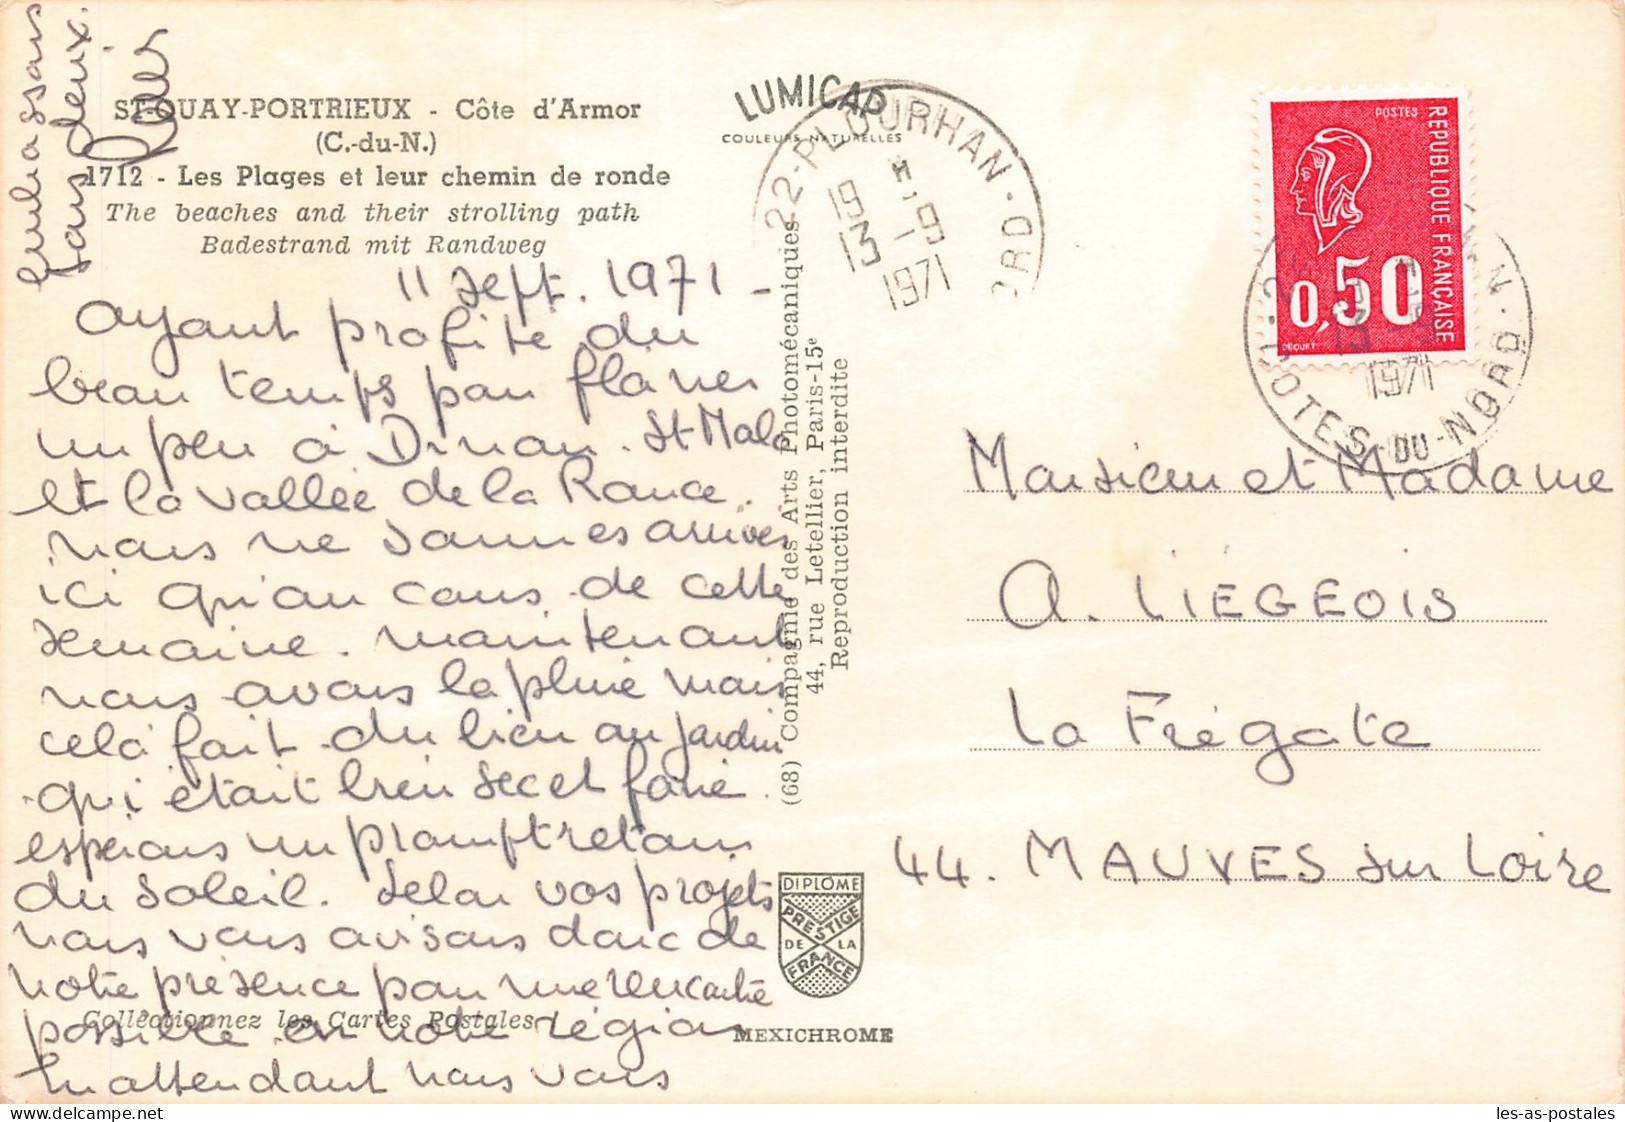 ST-QUAY-PORTRIEUX - Côte d'Armor
(C.-du-N.)
1712 - Les Plages et leur chemin de ronde
The beaches and their strolling path
Badestrand mit Randweg
11 Sept. 1971 -
Ayant profité du
beau temps pour flâner
un peu à Dinan. St Malo
et la vallée de la Rance.
nous ne sommes arrivés
ici qu'au cours de cette
semaine. maintenant
nous avons la pluie mais
celà fait du bien au jardin
qui était bien sec et fané.
espérons un prompt retour
du soleil. Selon vos projets
nous vous avisons donc de
notre présence pour une rencontre
possible en notre région
En attendant nous vous
embrassons
tous deux.
LUMICAP
COULEURS NATURELLES
(68) Compagnie des Arts Photomécaniques
44, rue Letellier, Paris-15e
Reproduction interdite
DIPLÔME
PRESTIGE
DE LA
FRANCE
Collectionnez les Cartes Postales !
MEXICHROME
22-PLOURHAN
19 H
13 -9
1971
POSTES
REPUBLIQUE FRANÇAISE
0,50
DECUET
13 -9
1971
COTES-DU-NORD
Monsieur et Madame
A. LIÉGEOIS
La Frégate
44. MAUVES sur Loire
les-as-postales.com
les-as-postales